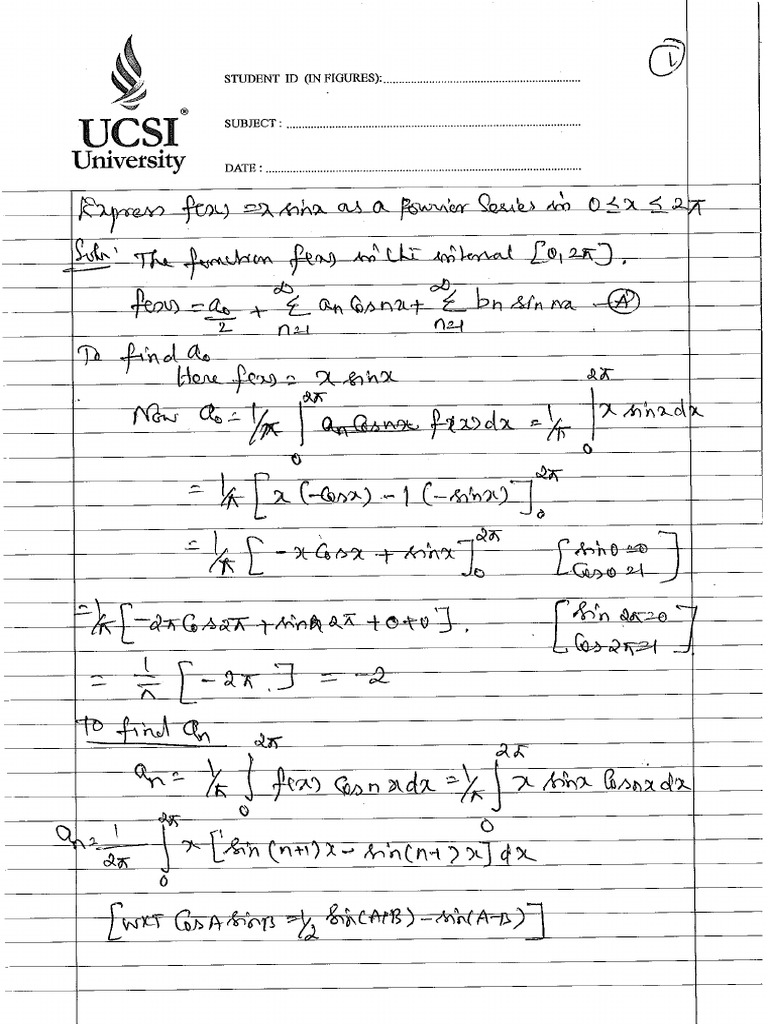 1
UCSI®
University
STUDENT ID (IN FIGURES):
SUBJECT :
DATE :
Express f(x) = x sinx as a Fourier Series in 0 ≤ x ≤ 2π
Soln: The function f(x) in the interval [0, 2π].
f(x) = a₀/2 + ∑_{n=1}^{∞} aₙ cosnx + ∑_{n=1}^{∞} bₙ sin nx — (A)
To find a₀
Here f(x) = x sinx
Now a₀ = 1/π ∫₀^{2π} f(x) dx = 1/π ∫₀^{2π} x sinx dx
= 1/π [x(-cosx) - 1(-sinx)]₀^{2π}
= 1/π [-x cosx + sinx]₀^{2π} [sin0=0 cos0=1]
= 1/π [-2π cos2π + sin 2π + 0 + 0]. [sin 2π=0 cos 2π=1]
= 1/π [-2π.] = -2
To find aₙ
aₙ = 1/π ∫₀^{2π} f(x) cosnx dx = 1/π ∫₀^{2π} x sinx cosnx dx
aₙ = 1/2π ∫₀^{2π} x [sin(n+1)x - sin(n-1)x] dx
[WKT cosA sinB = 1/2 sin(A+B) - sin(A-B)]